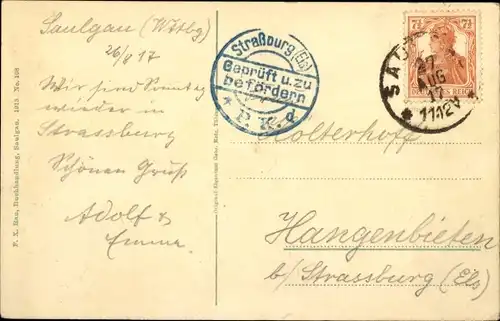 Saulgau (Wttbg)
26/8 17
Wir sind Sonntag
wieder in
Strassburg
Schönen Gruß
Adolf &
Emma
F. X. Bau, Buchhandlung, Saulgau. 1913. No. 108
Straßburg (Els)
Geprüft u. zu
befördern
P. K.
7½ 7½
DEUTSCHES REICH
27
AUG
17
11-12V
Holterhoff
Hangenbieten
b/ Strassburg (Els)